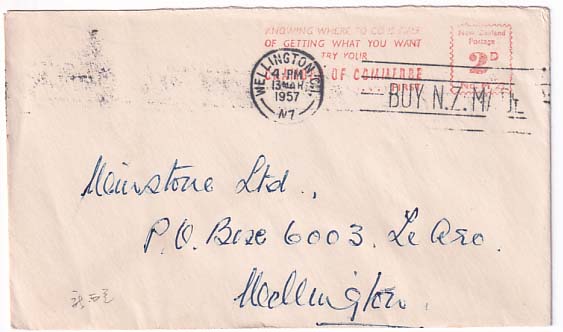 KNOWING WHERE TO GO
OF GETTING WHAT YOU WANT
TRY YOUR
CHAMBER OF COMMERCE
FIRST
New Zealand
Postage
2D
WELLINGTON
4 PM
13 MAR
1957
N.Z.
BUY N.Z. MADE
Mainstone Ltd.,
P.O. Box 6003. Te Aro.
Wellington.